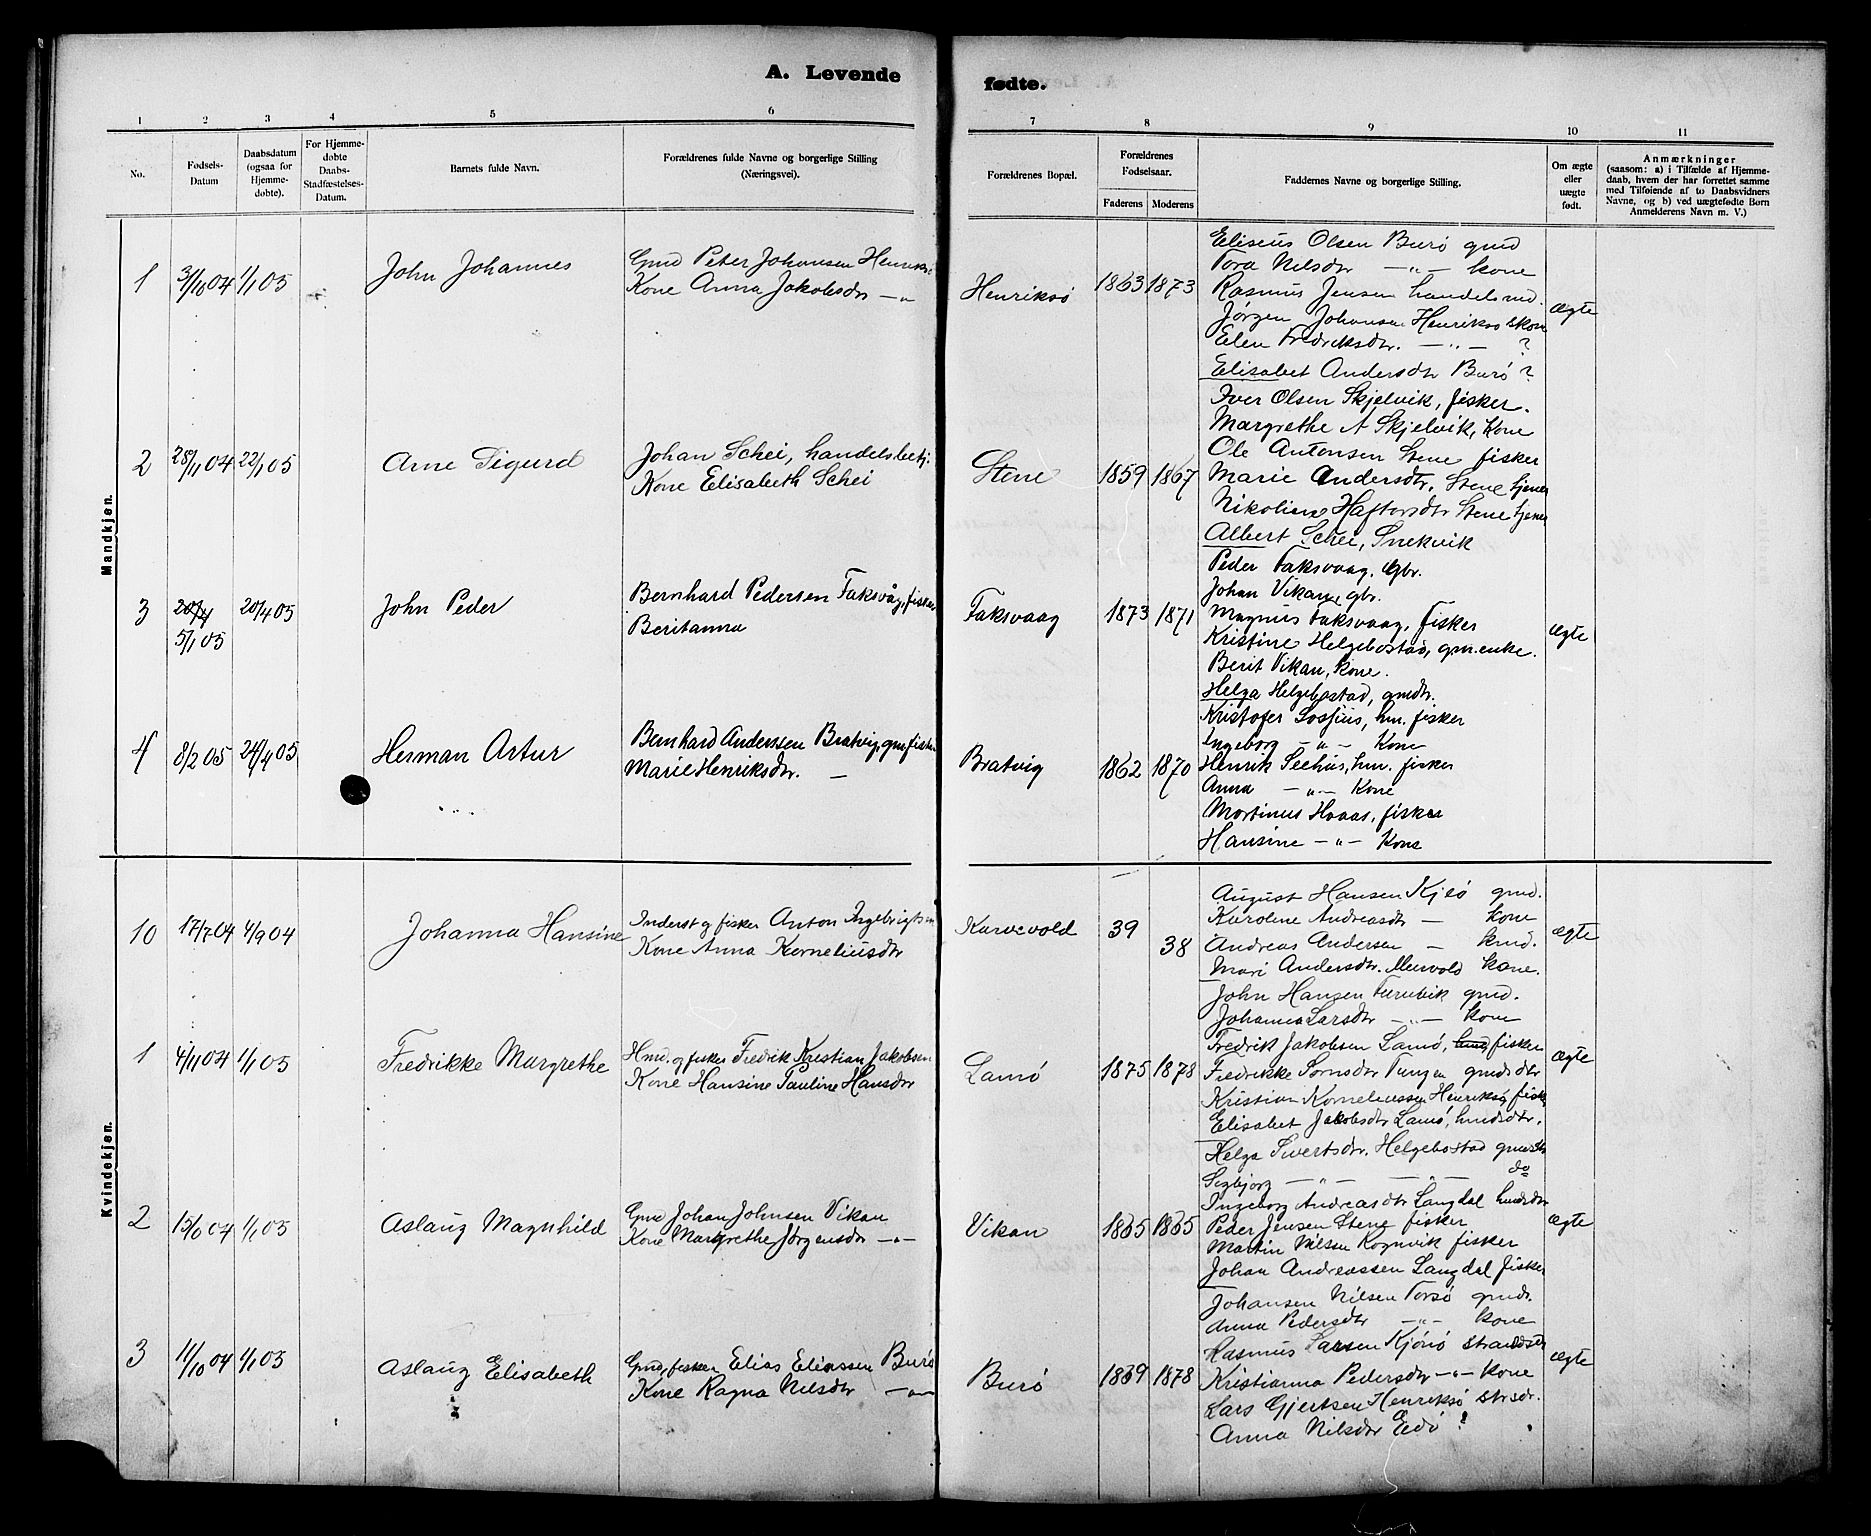 A. Levende
fødte.
1 2 3 4 5 6
7 8 9 10 11
No.
Fødsels-
Datum
Daabsdatum
(ogsaa for
Hjemme-
døbte).
For Hjemme-
døbte
Daabs-
Stadfæstelses-
Datum.
Barnets fulde Navn.
Forældrenes fulde Navne og borgerlige Stilling
(Næringsvei).
Forældrenes Bopæl.
Forældrenes
Fødselsaar.
Faderens Moderens
Faddernes Navne og borgerlige Stilling.
Om ægte
eller
uægte
født.
Anmærkninger
(saasom: a) i Tilfælde af Hjemme-
daab, hvem der har forrettet samme
med Tilføiende af to Daabsvidners
Navne, og b) ved uægtefødte Børn
Anmelderens Navn m. V.)
Mandkjøn.
1
3/10 04 1/1 05
John Johannes
Gmd Peter Johansen Henriksø
Kone Anna Jakobsdr -"-
Henriksø
1863 1873
Eliseus Olsen Burø gmd
Tora Nilsdtr -"- kone
Rasmus Jensen handelsmd.
Jørgen Johansen Henriksø
Elen Fredriksdtr. -"- ?
Elisabet Andersdtr Burø ?
ægte
2
28/11 04 22/1 05
Arne Sigurd
Johan Schei, handelsbetj.
Kone Elisabeth Schei
Stene
1859 1867
Iver Olsen Skjelvik, fisker.
Margrethe A Skjelvik, Kone
Ole Antonsen Stene fisker
Marie Andersdtr. Stene tjener
Nikoline Haftorsdtr Stene tjener
Albert Schei, Snekvik
3
20/4
5/1 05
20/4 05
John Peder
Bernhard Pedersen Faksvåg, fisker
Beritanna
Faksvaag
1873 1871
Peder Faksvaag, Gbr.
Johan Vikan, gbr.
Magnus Faksvaag, fisker
Kristine Helgebostad, gm. enke.
Berit Vikan, kone.
Helga Helgebostad, gmdtr.
ægte
4
8/2 05 24/4 05
Herman Artur
Bernhard Anderssen Bratvig, gm. fisker
Marie Henriksdtr. —
Bratvig
1862 1870
Kristofer Lossius, hm. fisker
Ingeborg -"- Kone
Henrik Seehus, hm. fisker
Anna -"- Kone
Martinus Hovaas, fisker
Hansine -"- Kone
Kvindekjøn.
10
17/7 04 4/9 04
Johanna Hansine
Inderst og fisker Anton Ingebrigtsen
Kone Anna Korneliusdtr
39
38
August Hansen Kjeø gmd.
Karoline Andreasdtr — kone
Andreas Andersen —
Mari Andersdtr. kone.
John Hansen Furuvik gmd.
Johanna Larsdtr -"- kone
ægte
1
4/11 04 1/1 05
Fredrikke Margrethe
Hmd. og fisker Fredrik Kristian Jakobsen
Kone Hansine Pauline Hansdtr
Lamø
1875 1878
Fredrik Jakobsen Lamø, fisker
Fredrikke Tungen gmdsdtr
Kristian Korneliussen Henriksø, fisker
Elisabet Jakobsdtr Lamø, hmdsdtr.
Helga Sivertsdtr. Helgebostad gmdsdtr
Sigbjørg -"- -"- do
ægte
2
1/1 05
Aslaug Magnhild
Gmd Johan Johnsen Vikan
Kone Margrethe Jørgensdtr -"-
Vikan
1865 1865
Ingeborg Andreasdtr Langdal hmdsdtr
Peder Jensen Stene fisker
Martin Nilsen Kognvik fisker
Johan Andreassen Langdal fisker
Johansen Nilsen Torsø gmd.
Anna Pedersdtr -"- kone
ægte
3
11/10 04 1/1 05
Aslaug Elisabeth
Gmd, fisker Elias Eliassen Burø
Kone Ragna Nilsdtr -"-
Burø
1869 1878
Rasmus Larsen Kjørø strandsid.
Kristianna Pedersdtr -"- kone
Lars Gjertsen Henriksø strsdr.
Anna Nilsdtr Edø ?
ægte